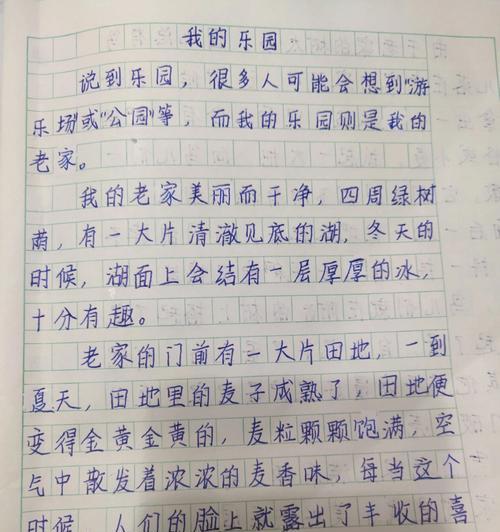 我的乐园
说到乐园，很多人可能会想到“游
乐场”或“公园”等，而我的乐园则是我的
老家。
我的老家美丽而干净，四周绿树
荫，有一大片清澈见底的湖，冬天的
时候，湖面上会结有一层厚厚的冰，
十分有趣。
老家的门前有一大片田地，一到
夏天，田地里的麦子成熟了，田地便
变得金黄金黄的，麦粒颗颗饱满，空
气中散发着浓浓的麦香味，每当这个
时候，人们的脸上就露出了丰收的喜